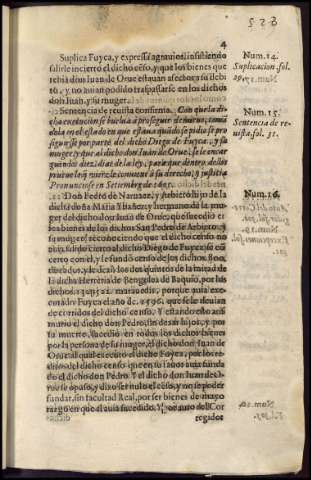 523
4
Suplica Fuyca, y expressa agrauios, insistiendo
salirle incierto el dicho cēso, y que los bienes que
tenia don Iuan de Orue estauan afectos a su debi
to, y no auian podido traspassarse en los dichos
don Iuan, y su muger.
Sentencia de reuista confirma. Con que la di-
cha execucion se buelua a proseguir de nueuo, toma
dola en el estado en que estaua quādo se pidio se pro
siguiesse por parte del dicho Diego de Fuyca, y su
muger, y que al dicho don Iuan de Orue se le encar
guen los diez dias de la ley, para que dentro dellos
prueue lo que le conuiene a su derecho, y justicia
Pronunciose en Setiembre de 1605.
Don Pedro de Narruaez, y Esteban hijo de la
dicha doña Maria Ybañez, y hermano de la mu-
ger del dicho don Iuan de Orue, que sucedio en
los bienes de los dichos San Pedro de Arbieto, y
su muger, reconociendo que el dicho censo no
auia salido cierto al dicho Diego de Fuyca se cō
certo con el, y le fundò censo de los dichos 800.
ducados, y le cedio los dos quintos de la mitad de
la dicha Herreria de Bengolea de Baquio, por los
dichos
cutado Fuyca el año de 1596. que se le deuian
de corridos del dicho censo. Y estando esto assi
murio el dicho don Pedro, sin dexar hijos, y por
su muerte, sucedio en todos los dichos bienes
por la persona de su muger, el dicho don Iuan de
Orue, al qual executò el dicho Fuyca, por los re-
ditos del dicho censo que en su fauor auia funda
do el dicho don Pedro. Y el dicho don Iuan de O
rue se opuso, y dixo ser nulo el censo, y no se poder
fundar, sin facultad Real, por ser bienes de mayo
razgo en que el auia sucedido. Y por auto del Cor
regidor
Num. 14.
Suplicacion. fol.
Num. 15.
Sentencia de re-
uista. fol. 31.
Num. 16.